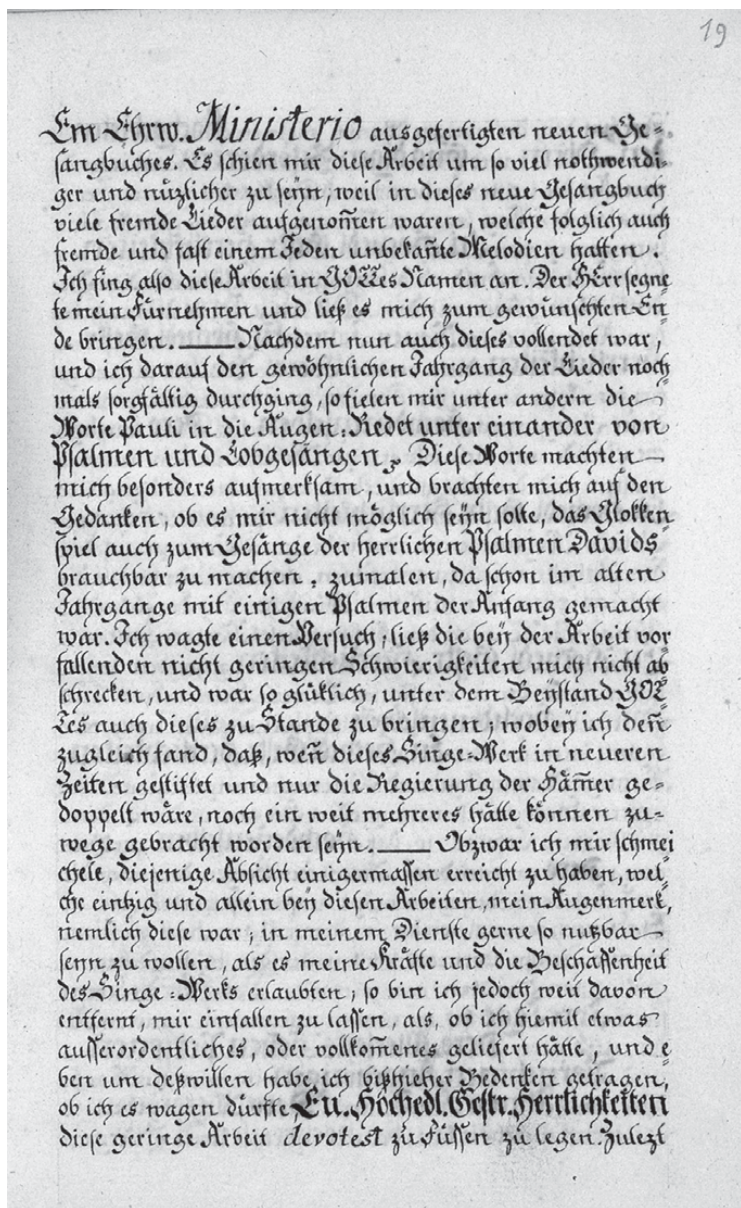 19
Em Ehrw. Ministerio ausgefertigten neuen Ge=
sangbuches. Es schien mir diese Arbeit um so viel nothwendi=
ger und nüzlicher zu seÿn, weil in dieses neue Gesangbuch
viele fremde Lieder aufgenom̄en waren, welche folglich auch
fremde und fast einem Jeden unbekan̄te Melodien hatten.
Ich fing also diese Arbeit in GOTTes Namen an. Der HErr segne=
te mein Fürnehmen und ließ es mich zum gewünschten En=
de bringen. — Nachdem nun auch dieses vollendet war,
und ich darauf den gewöhnlichen Jahrgang der Lieder noch=
mals sorgfältig durchging, so fielen mir unter andern die
Worte Pauli in die Augen: Redet unter einander von
Psalmen und Lobgesängen. Diese Worte machten
mich besonders aufmerksam, und brachten mich auf den
Gedanken, ob es mir nicht möglich seÿn solte, das Glokken=
spiel auch zum Gesänge der herrlichen Psalmen Davids
brauchbar zu machen, zumalen, da schon im alten
Jahrgange mit einigen Psalmen der Anfang gemacht
war. Ich wagte einen Versuch, ließ die beÿ der Arbeit vor=
fallenden nicht geringen Schwierigkeiten mich nicht ab=
schrecken, und war so glüklich, unter dem Beÿstand GOT=
Tes auch dieses zu Stande zu bringen; wobeÿ ich den̄
zugleich fand, daß, wen̄ dieses Singe=Werk in neueren
Zeiten gestiftet und nur die Regierung der Häm̄er ge=
doppelt wäre, noch ein weit mehreres hätte können zu=
wege gebracht worden seÿn. — Obzwar ich mir schmei=
chele, diejenige Absicht einigermassen erreicht zu haben, wel=
che eintzig und allein beÿ diesen Arbeiten, mein Augenmerk,
nemlich diese war, in meinem Dienste gerne so nutzbar
seÿn zu wollen, als es meine Kräfte und die Beschaffenheit
des Singe=Werks erlaubten; so bin ich jedoch weit davon
entfernt, mir einfallen zu lassen, als, ob ich hiemit etwas
ausserordentliches, oder vollkom̄enes geliefert hätte, und e=
ben um deßwillen habe ich bißhieher Bedenken getragen,
ob ich es wagen dürfte, Eu. Hochedl. Gestr. Herrlichkeiten
diese geringe Arbeit devotest zu Füssen zu legen. Zulezt